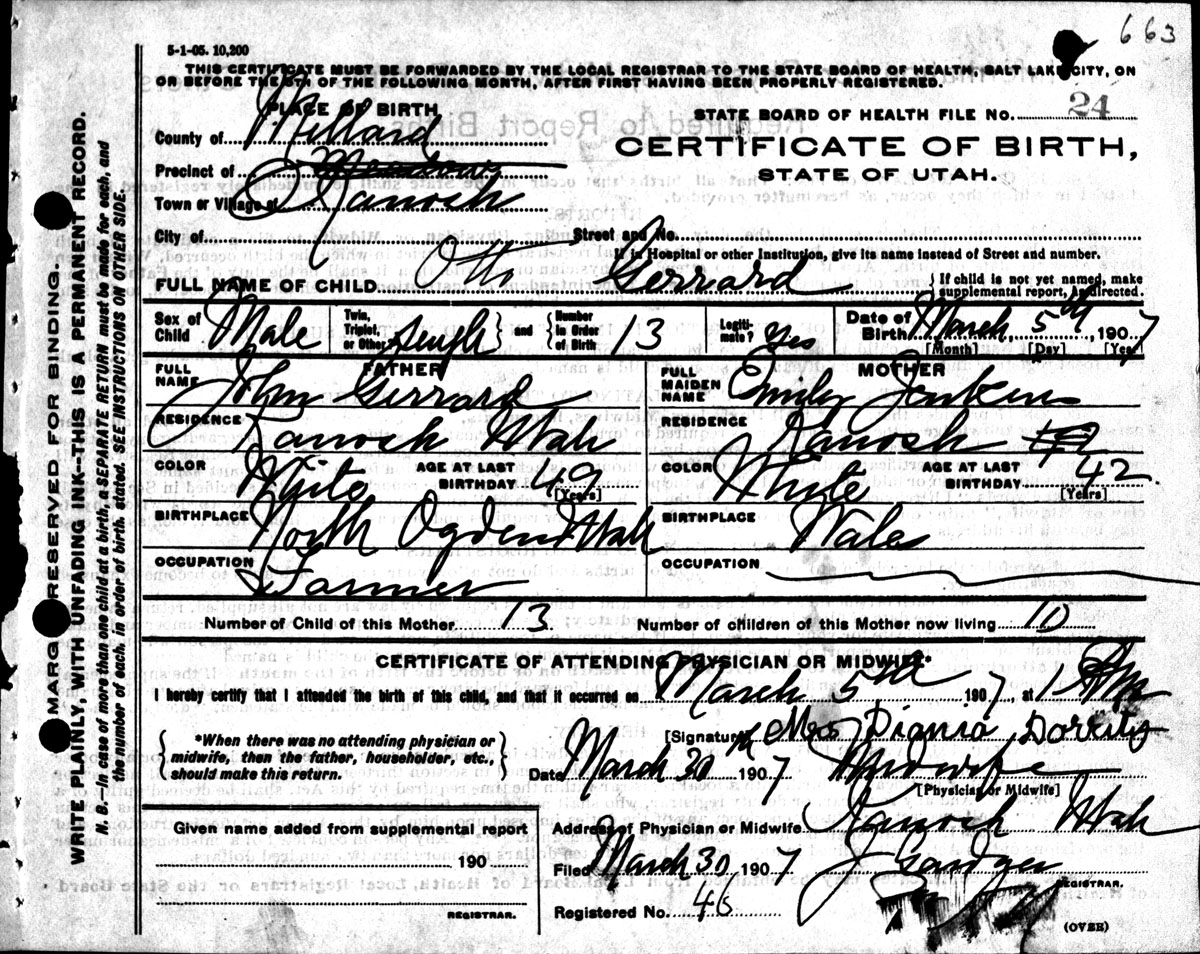 663
5-1-05. 10,200
THIS CERTIFICATE MUST BE FORWARDED BY THE LOCAL REGISTRAR TO THE STATE BOARD OF HEALTH, SALT LAKE CITY, ON
OR BEFORE THE 5TH OF THE FOLLOWING MONTH, AFTER FIRST HAVING BEEN PROPERLY REGISTERED.
PLACE OF BIRTH
STATE BOARD OF HEALTH FILE No. 24
County of Millard
CERTIFICATE OF BIRTH,
STATE OF UTAH.
Precinct of Meadow
Town or Village of Kanosh
City of Street and No.
If in Hospital or other Institution, give its name instead of Street and number.
FULL NAME OF CHILD Otto Gerrard { If child is not yet named, make supplemental report, as directed.
Sex of Child Male Twin, Triplet, or Other, Single } and { Number in Order of Birth 13 Legitimate? Yes Date of Birth March 5th, 1907
[Month] [Day] [Year]
FATHER MOTHER
FULL NAME John Gerrard FULL MAIDEN NAME Emily Jenkins
RESIDENCE Kanosh Utah RESIDENCE Kanosh
COLOR White AGE AT LAST BIRTHDAY 49 [Years] COLOR White AGE AT LAST BIRTHDAY 42 [Years]
BIRTHPLACE North Ogden Utah BIRTHPLACE Wales
OCCUPATION Farmer OCCUPATION
Number of Child of this Mother 13 Number of children of this Mother now living 10
CERTIFICATE OF ATTENDING PHYSICIAN OR MIDWIFE*
I hereby certify that I attended the birth of this child, and that it occurred on March 5th 1907, at 1 AM
{ *When there was no attending physician or midwife, then the father, householder, etc., should make this return. }
[Signature] Mrs Diania Dorrity
Date March 30th 1907 Midwife
[Physician or Midwife]
Given name added from supplemental report
Address of Physician or Midwife Kanosh Utah
190
Filed March 30 1907 J
REGISTRAR.
REGISTRAR.
Registered No. 46
(OVER)
MARGIN RESERVED FOR BINDING.
WRITE PLAINLY, WITH UNFADING INK—THIS IS A PERMANENT RECORD.
N. B.—In case of more than one child at a birth, a SEPARATE RETURN must be made for each, and
the number of each, in order of birth, stated. SEE INSTRUCTIONS ON OTHER SIDE.